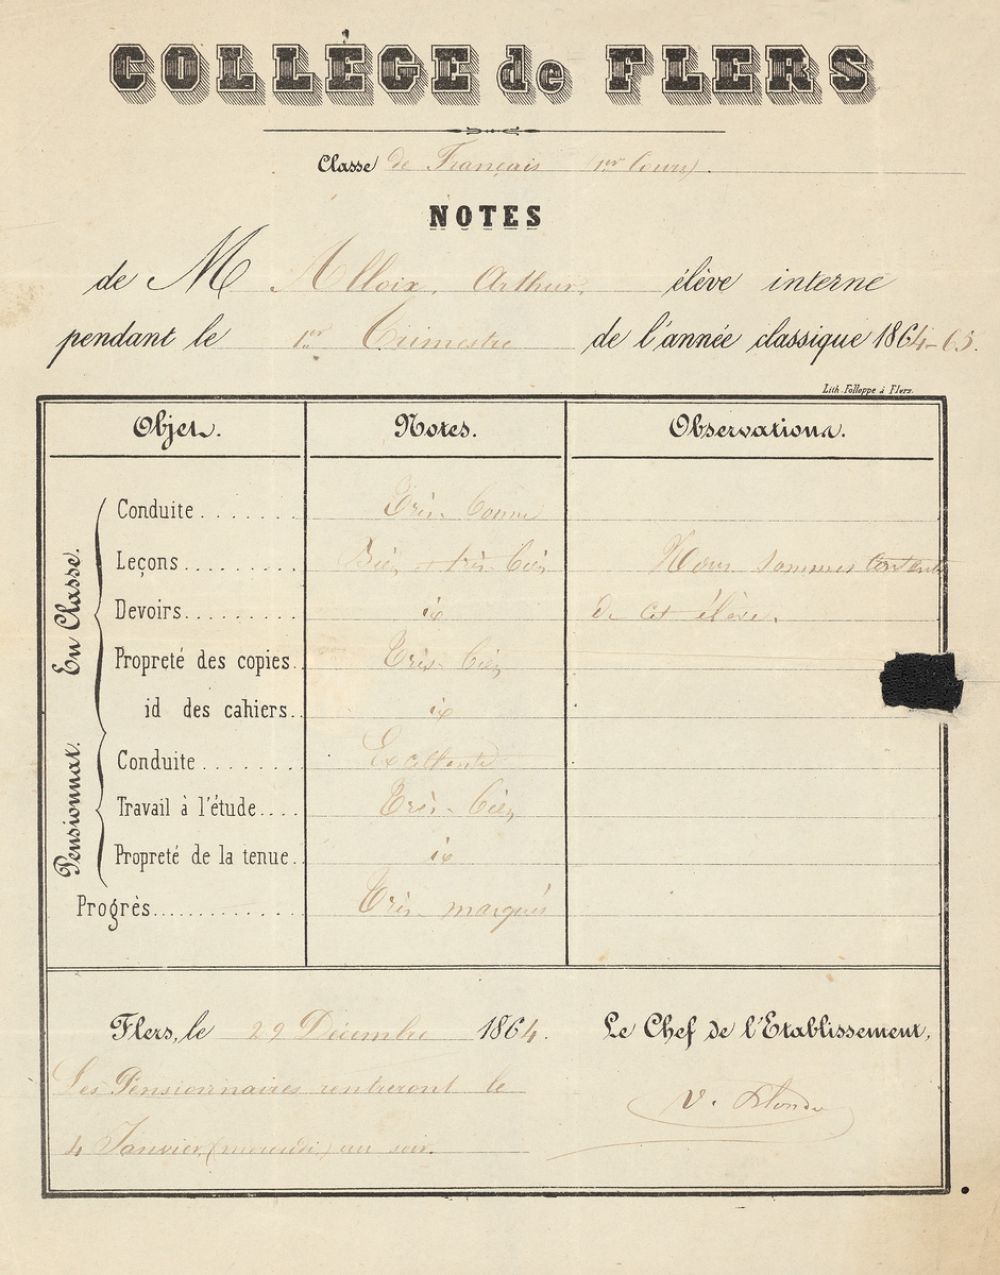 COLLÈGE de FLERS
Classe de Français (1er Cours).
NOTES
de M Alloix. Arthur. élève interne
pendant le 1er Trimestre de l'année classique 1864-65.
Lith. Folloppe à Flers.
Objet. Notes. Observations.
En Classe.
Conduite....... Très-bonne
Leçons......... Bien et très-bien Nous sommes contents
Devoirs......... id de cet élève.
Propreté des copies. Très-bien
id des cahiers.. id
Pensionnat.
Conduite....... Excellente
Travail à l'étude.... Très-bien
Propreté de la tenue. id
Progrès............. Très-marqués
Flers, le 29 Décembre 1864. Le Chef de l'Etablissement,
Les Pensionnaires rentreront le
4 Janvier (mercredi) au soir.